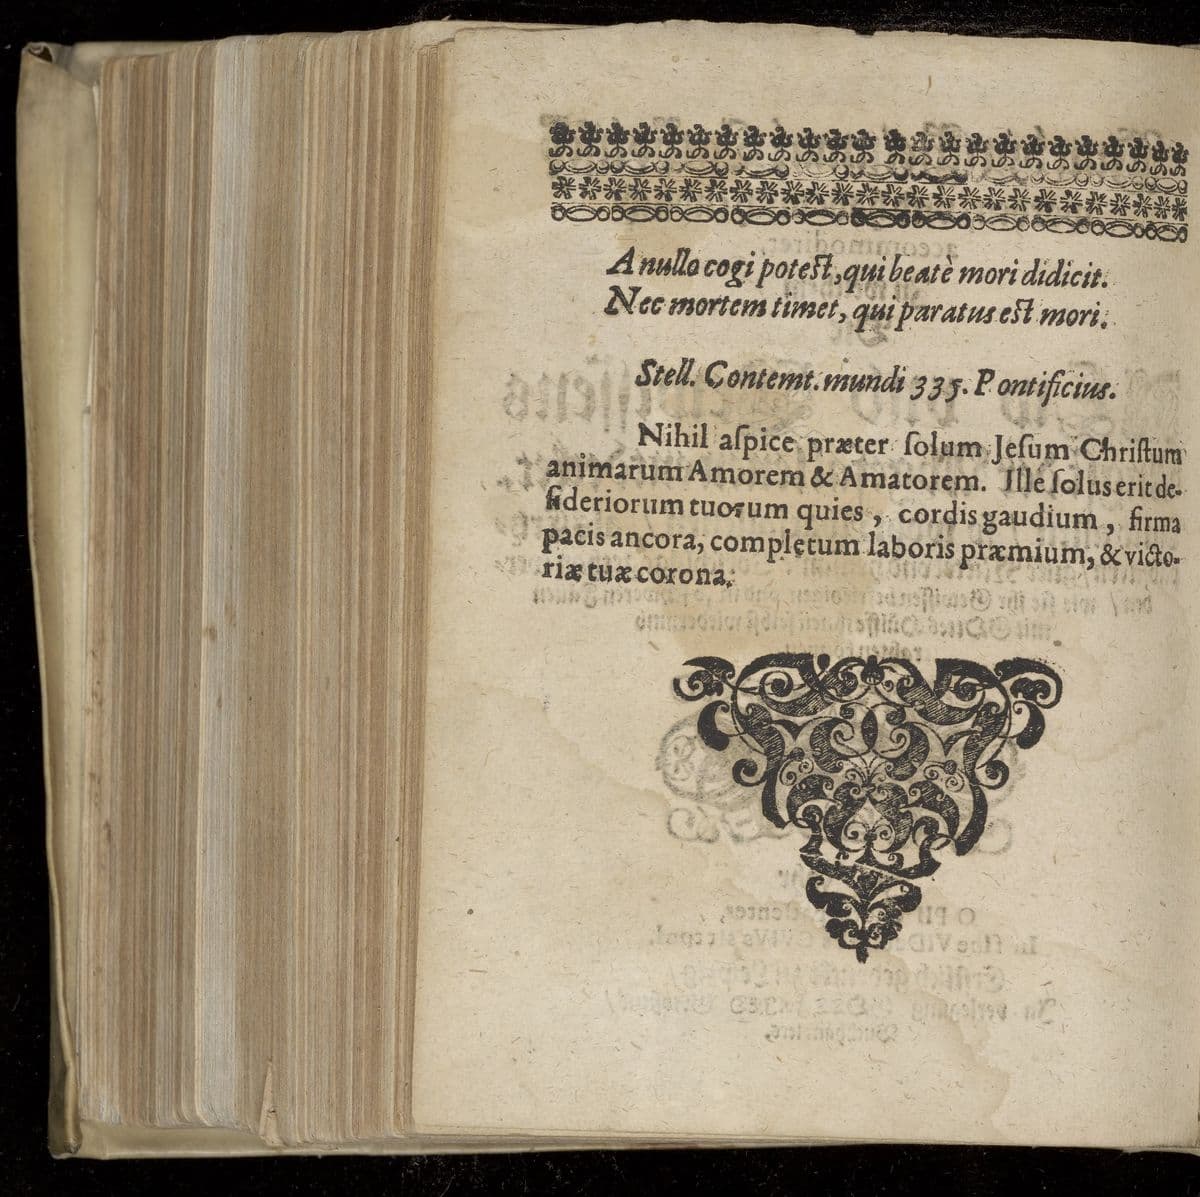 A nullo cogi potest, qui beatè mori didicit.
Nec mortem timet, qui paratus est mori.
Stell. Contemt. mundi 335. Pontificius.
Nihil aſpice præter ſolum Jeſum Chriſtum
animarum Amorem & Amatorem. Ille ſolus erit de-
ſideriorum tuorum quies, cordis gaudium, firma
pacis ancora, completum laboris præmium, & victo-
riæ tuæ corona.